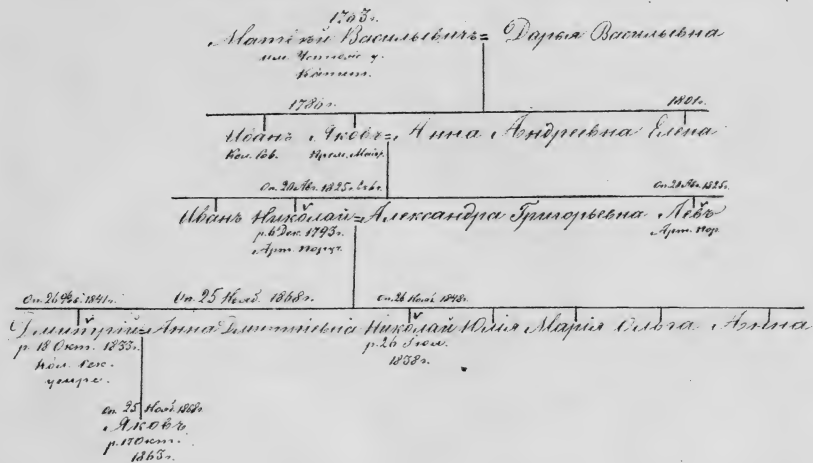 1763 г.
Матвѣй Васильевичъ = Дарья Васильевна
Капит.
1786 г. 1801 г.
Иванъ Яковъ = Анна Андреевна Елена
Кол. Сов. Прем. Маіор.
Оп. 28 Авг. 1825 г. Оп. 28 Авг. 1825 г.
Иванъ Николай = Александра Григорьевна Левъ
р. 6 Дек. 1793 г. Арт. пор.
Арт. поруч.
Оп. 26 1841 г. Оп. 25 Нояб. 1868 г. Оп. 26 Нояб. 1848 г.
Дмитрій = Анна Дмитріевна Николай Юлія Марія Ольга Анна
р. 18 Окт. 1833 г. р. 26 Іюл.
Кол. Сек. 1838 г.
умре.
Оп. 25 Нояб. 1868 г.
Яковъ
р. 17 Окт.
1863 г.